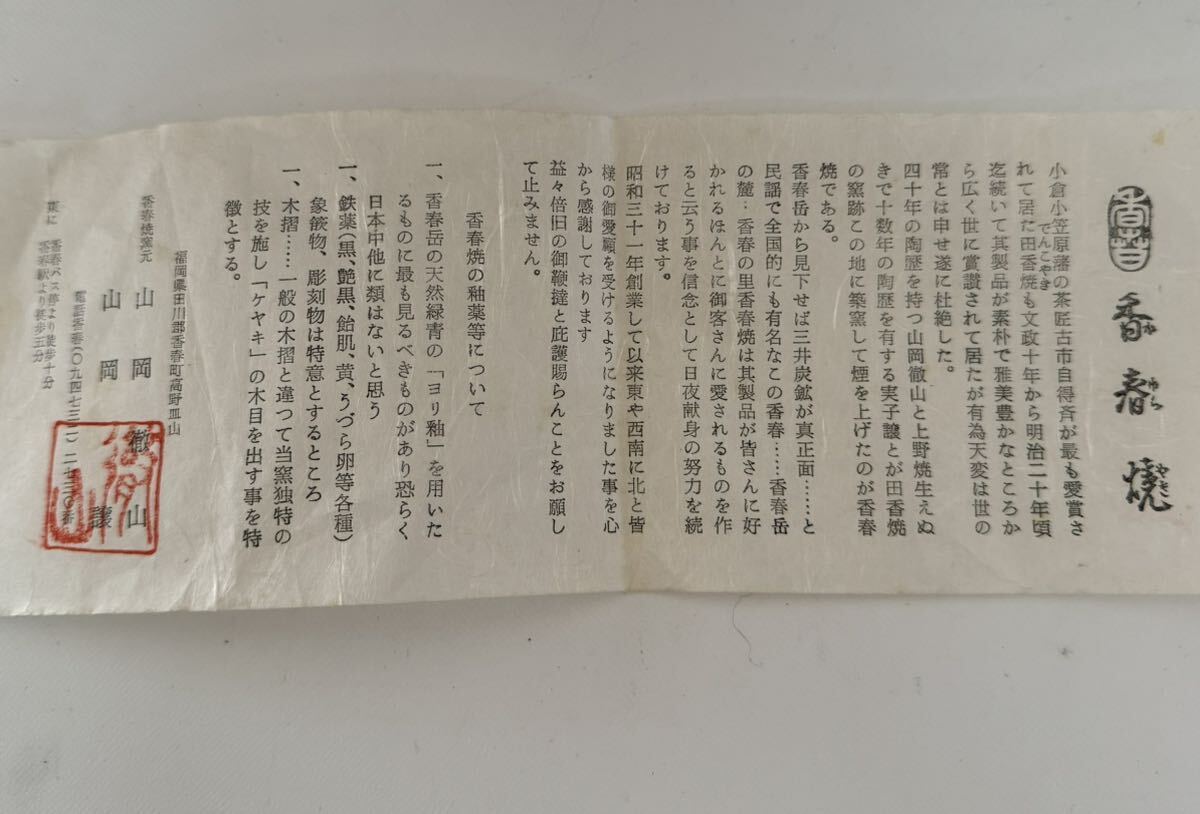 香春
香春焼
かわらやき
小倉小笠原藩の茶匠古市自得斉が最も愛賞さ
れて居た田香焼も文政十年から明治二十年頃
でんこやき
迄続いて其製品が素朴で雅美豊かなところか
ら広く世に賞讃されて居たが有為天変は世の
常とは申せ遂に杜絶した。
四十年の陶歴を持つ山岡徹山と上野焼生えぬ
きで十数年の陶歴を有する実子譲とが田香焼
の窯跡この地に築窯して煙を上げたのが香春
焼である。
香春岳から見下せば三井炭鉱が真正面……と
民謡で全国的にも有名なこの香春……香春岳
の麓…香春の里香春焼は其製品が皆さんに好
かれるほんとに御客さんに愛されるものを作
ると云う事を信念として日夜献身の努力を続
けております。
昭和三十一年創業して以来東や西南に北と皆
様の御愛顧を受けるようになりました事を心
から感謝しております
益々倍旧の御鞭撻と庇護賜らんことをお願し
て止みません。
香春焼の釉薬等について
一、香春岳の天然緑青の「ヨリ釉」を用いた
るものに最も見るべきものがあり恐らく
日本中他に類はないと思う
一、鉄薬(黒、艶黒、飴肌、黄、うづら卵等各種)
象篏物、彫刻物は特意とするところ
一、木摺……一般の木摺と違つて当窯独特の
技を施し「ケヤキ」の木目を出す事を特
徴とする。
福岡県田川郡香春町高野皿山
香春焼窯元 山岡徹山
山岡譲
電話香春(〇九四七三二)二七三〇番
香春バス停より徒歩十分
香春駅より徒歩五分